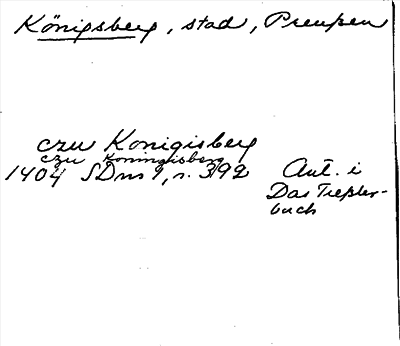 Königsberg, stad, Preußen
czu Konigisberg
czu Koningisberg
1404 SDns 1, s. 392 Ant. i
Das Treßler-
buch